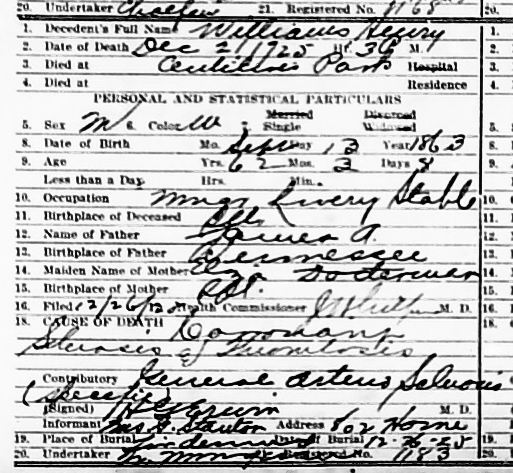 20. Undertaker 21. Registered No. 1168
1. Decedent's Full Name Williams Henry
2. Date of Death Dec 21 1925 Hr. 36 M.
3. Died at Park Hospital
4. Died at Residence
PERSONAL AND STATISTICAL PARTICULARS
5. Sex M 6. Color W 7. Married Single Divorced Widowed
8. Date of Birth Mo. Sept Day 13 Year 1863
9. Age Yrs. 62 Mos. 3 Days 8
Less than a Day Hrs. Min.
10. Occupation Mngr Livery Stable
11. Birthplace of Deceased Ill.
12. Name of Father James A.
13. Birthplace of Father Tennessee
14. Maiden Name of Mother
15. Birthplace of Mother Ill.
16. Filed 12/26/1925 Health Commissioner M. D.
18. CAUSE OF DEATH Coronary
Sclerosis & Thrombosis
Contributory General Arterio Sclerosis
(Specific)
(Signed) M. D.
Informant Mrs. Stanton Address 802 Horne
19. Place of Burial Date of Burial 12-26-25
20. Undertaker Registered No. 1183